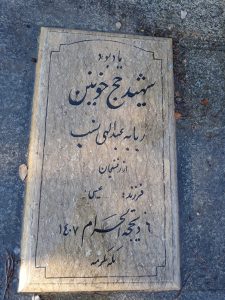 یادبود
شهید حج خونین
ریابه عبدالهی نسب
از رفسنجان
فرزند: عیسی
۶ ذیحجة الحرام ۱۴۰۷
مکه مکرمه